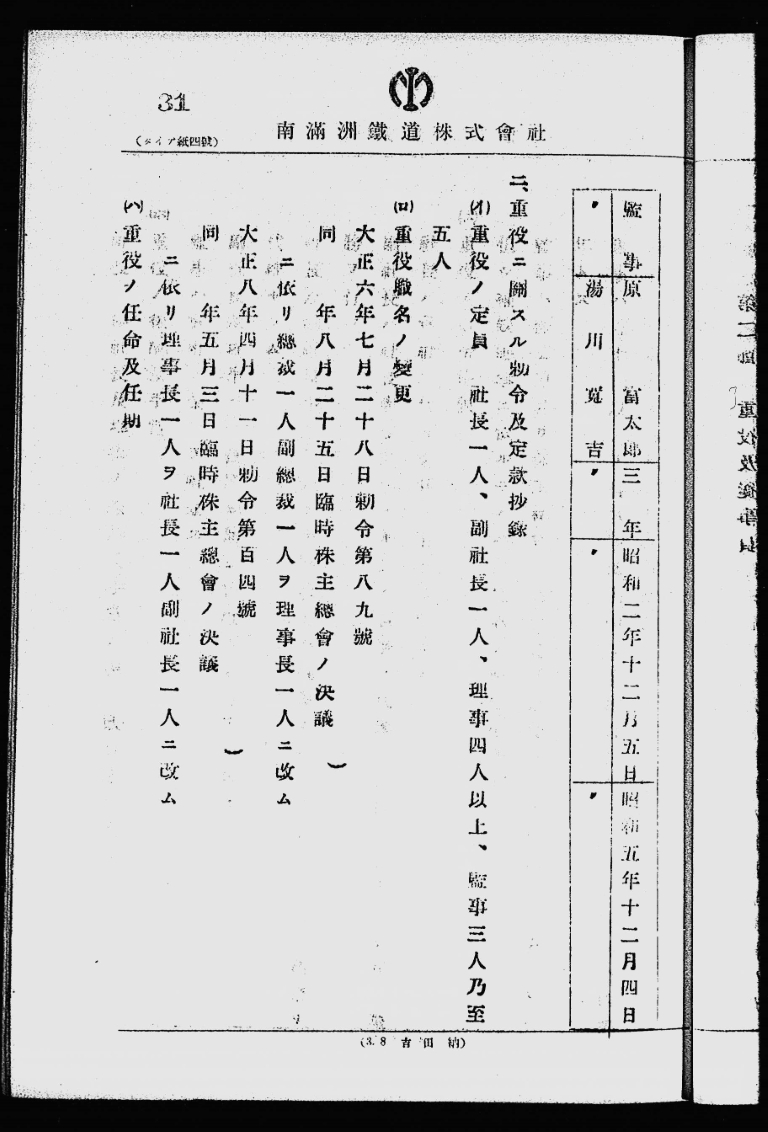 31
南滿洲鐵道株式會社
(タイプ紙四號)
監事 原富太郎 三年 昭和二年十二月五日 昭和五年十二月四日
〃 湯川寬吉 〃 〃 〃
二、重役ニ關スル勅令及定款抄錄
(イ)重役ノ定員 社長一人、副社長一人、理事四人以上、監事三人乃至
五人
(ロ)重役職名ノ變更
大正六年七月二十八日勅令第八九號
同 年八月二十五日臨時株主總會ノ決議)
ニ依リ總裁一人副總裁一人ヲ理事長一人ニ改ム
大正八年四月十一日勅令第百四號
同 年五月三日臨時株主總會ノ決議)
ニ依リ理事長一人ヲ社長一人副社長一人ニ改ム
(ハ)重役ノ任命及任期
(3.8 吉田納)